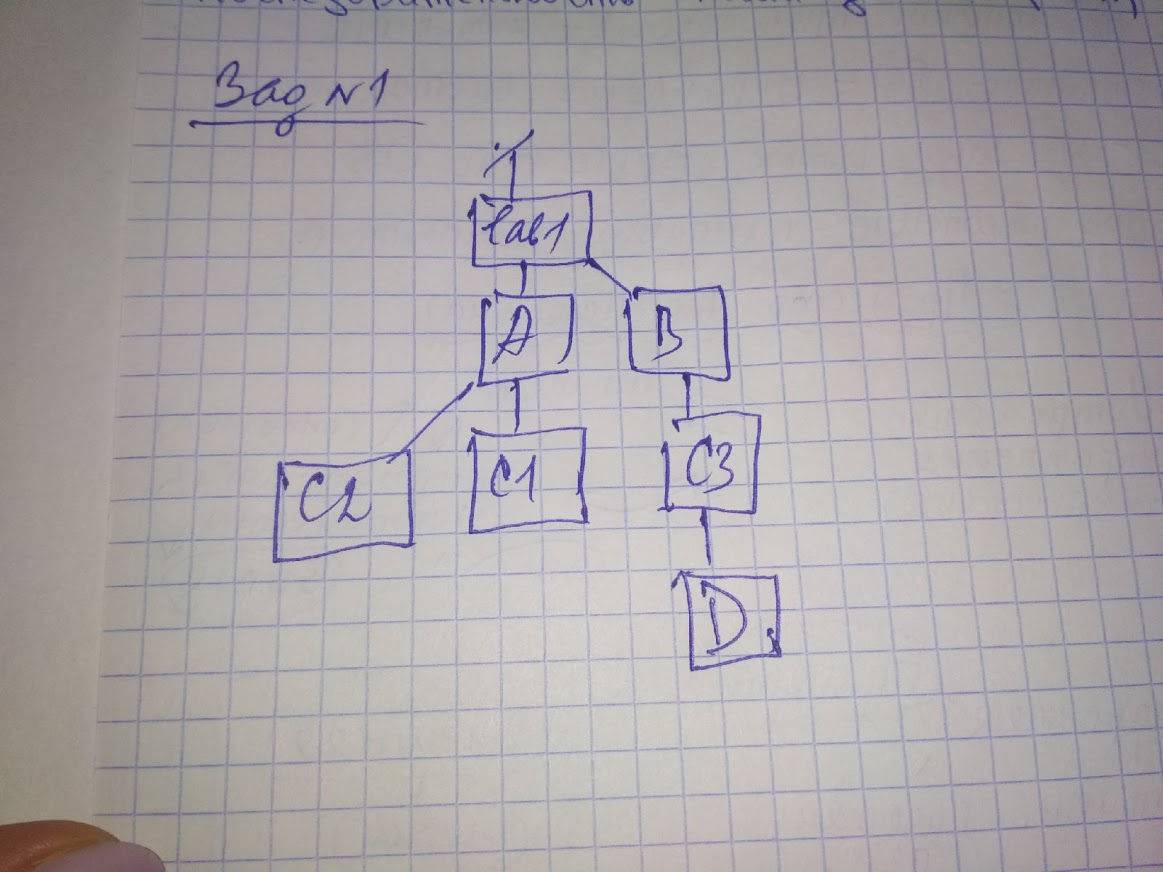 Зад №1
Lab1
A
B
C2
C1
C3
D